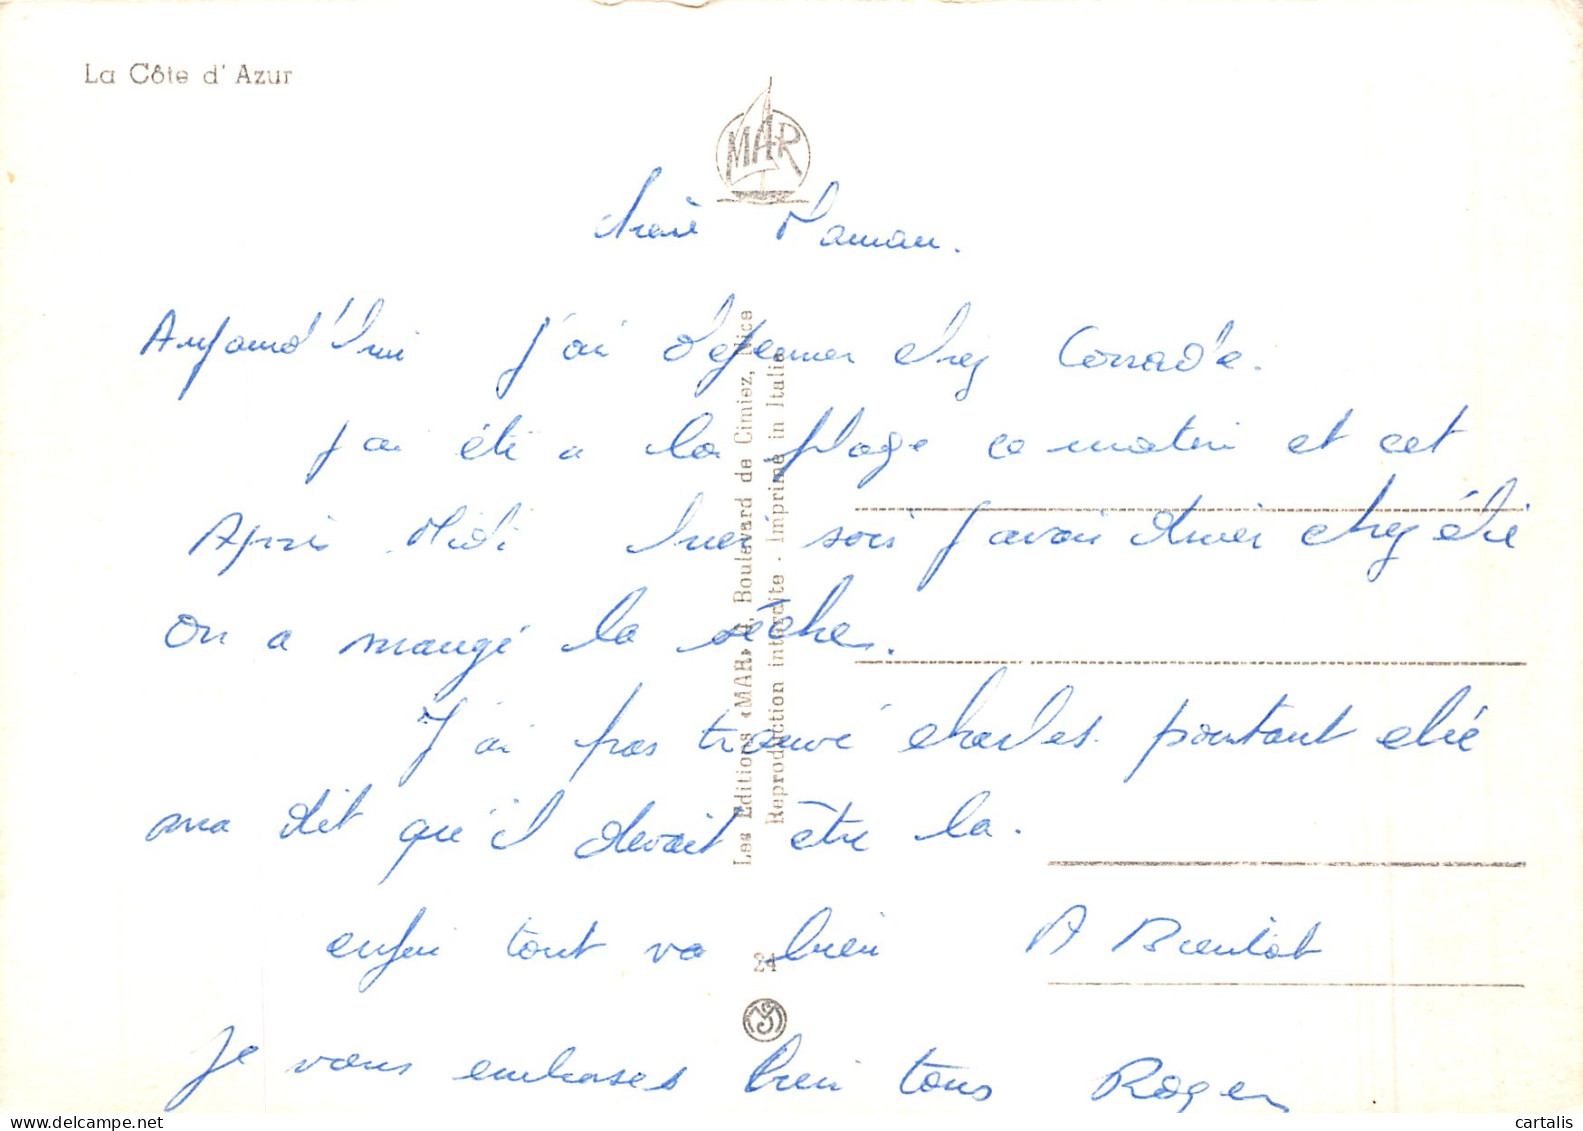 La Côte d'Azur
MAR
chere Maman.
Aujourd'hui j'ai dejeuner chez Corrade.
j'ai été a la plage ce matin et cet
Apres Midi hier soir j'avais diner chez élie
on a mangé la sèches.
J'ai pas trouvé charles pourtant elié
ma dit qu'il devait être la.
enfin tout va bien A Bientot
Je vous embrases bien tous Roger
Les Editions «MAR» Boulevard de Cimiez, Nice
Reproduction interdite - Imprimé in Italie
cartalis